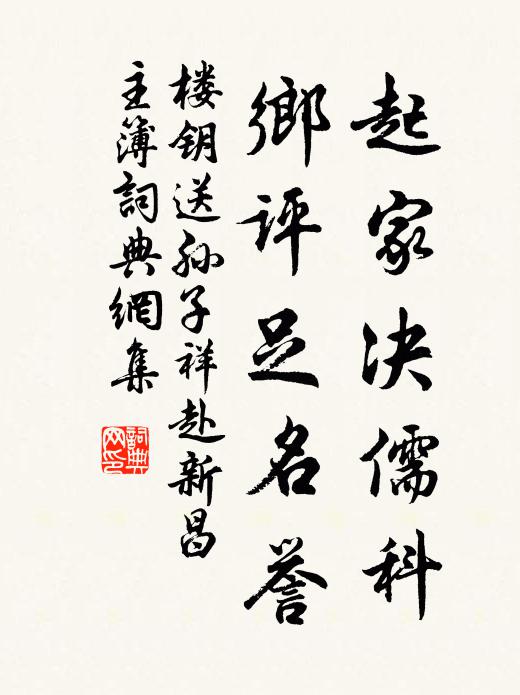 起家决儒科
鄉评足名誉
楼钥送孙子祥赴新昌
主簿詞典網集
詞典
网印